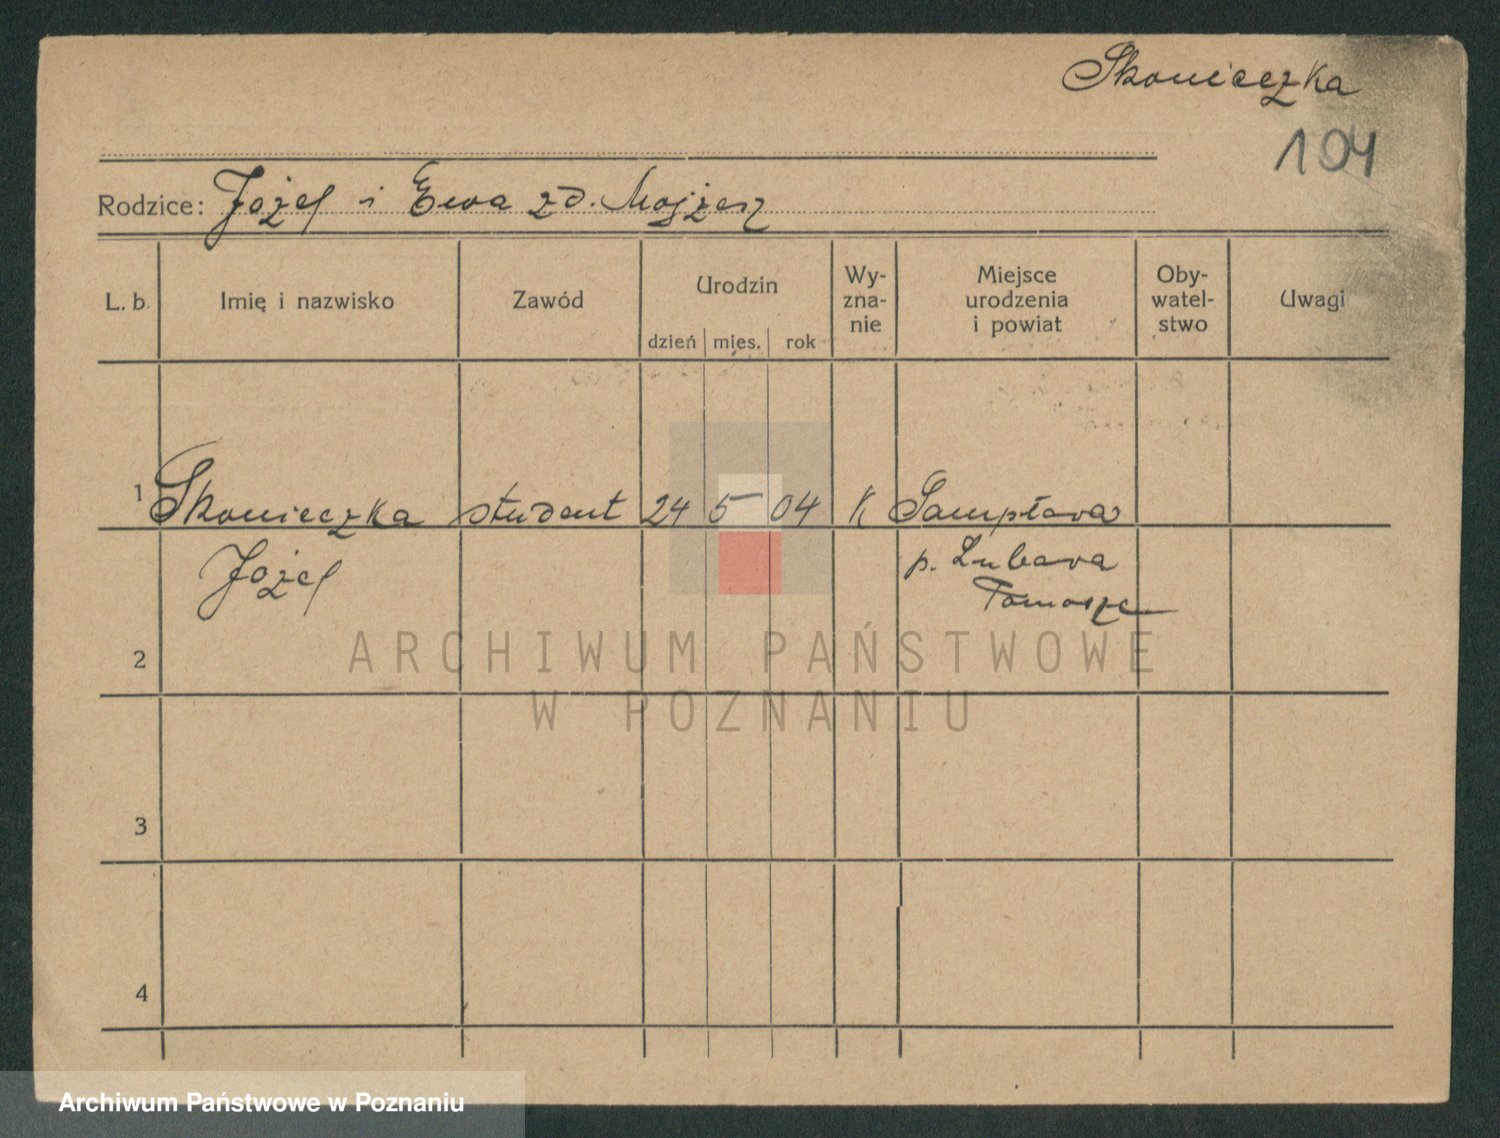 Skonieczka
104
Rodzice: Józef i Ewa zd. Mojżesz
L. b. Imię i nazwisko Zawód Urodzin dzień mies. rok Wy-zna-nie Miejsce urodzenia i powiat Oby-watel-stwo Uwagi
1 Skonieczka student 24 5 04 K Sampława
Józef p. Lubawa
Pomorze
2
3
4
ARCHIWUM PAŃSTWOWE
W POZNANIU
Archiwum Państwowe w Poznaniu